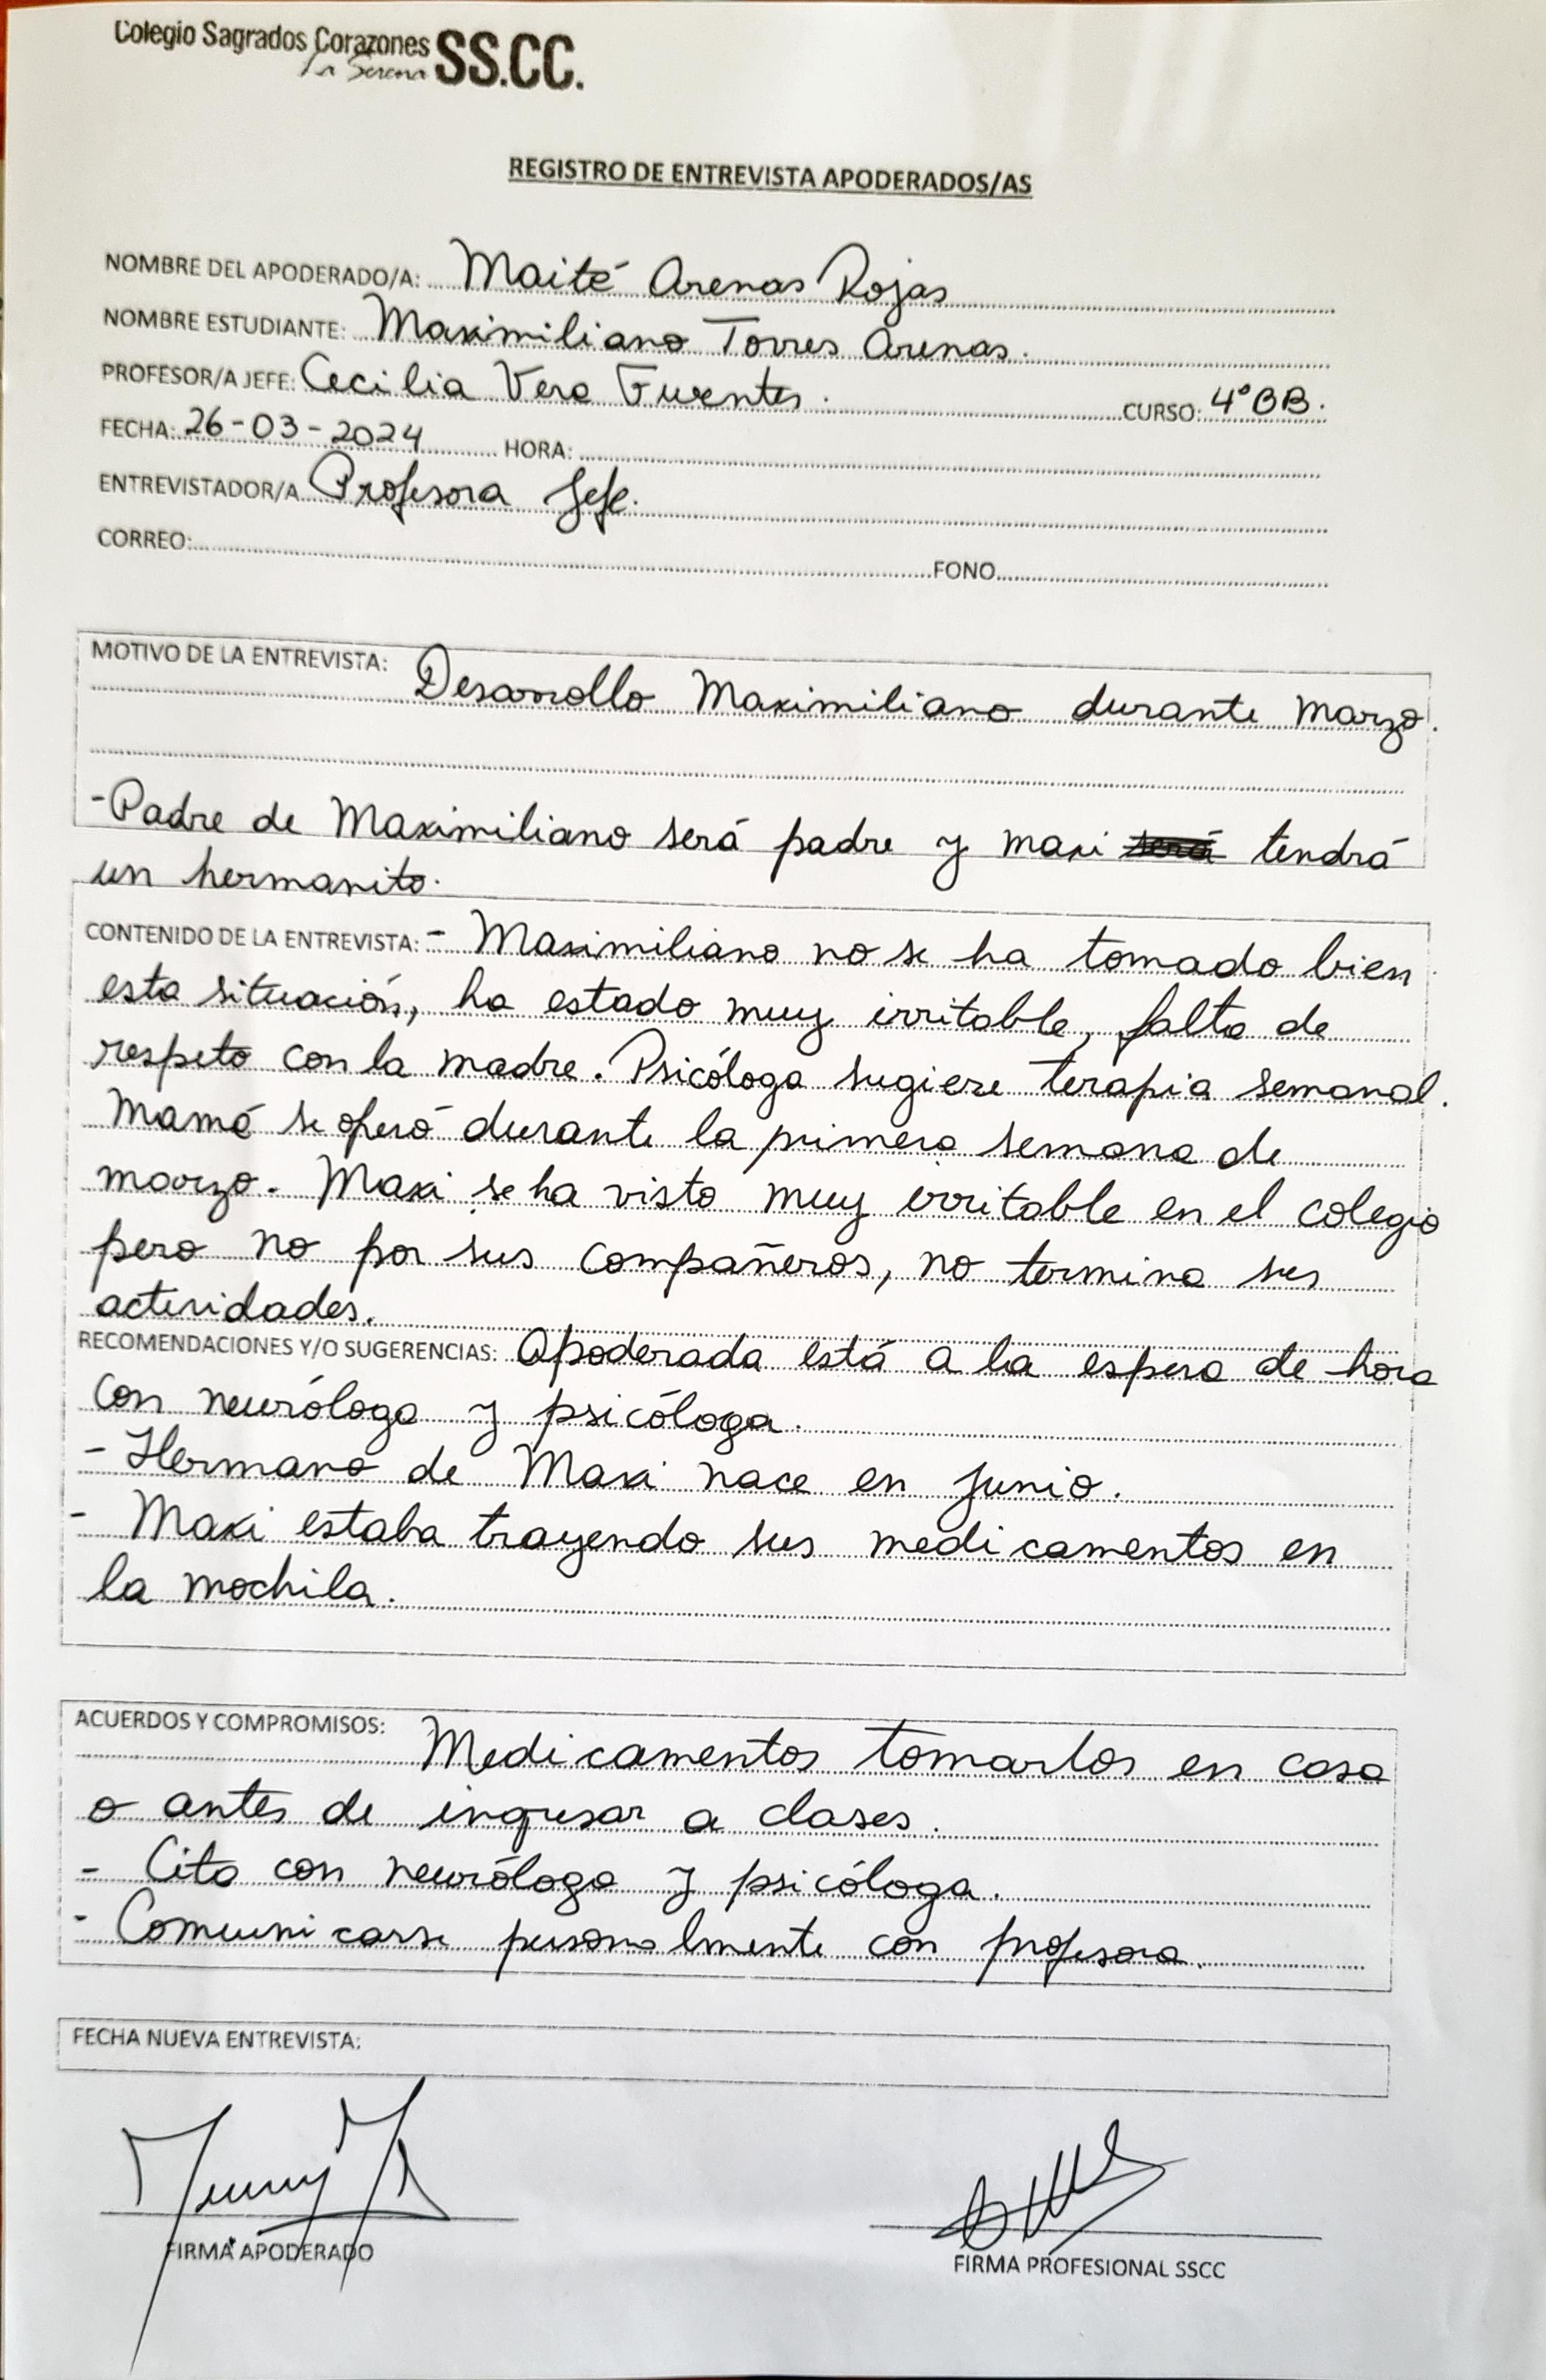 Colegio Sagrados Corazones SS.CC.
La Serena
REGISTRO DE ENTREVISTA APODERADOS/AS
NOMBRE DEL APODERADO/A: Maité Arenas Rojas
NOMBRE ESTUDIANTE: Maximiliano Torres Arenas.
PROFESOR/A JEFE: Cecilia Vera Fuentes. CURSO: 4°BB.
FECHA: 26-03-2024 HORA:
ENTREVISTADOR/A Profesora Jefe.
CORREO: FONO
MOTIVO DE LA ENTREVISTA: Desarrollo Maximiliano durante marzo.
-Padre de Maximiliano será padre y maxi será tendrá
un hermanito.
CONTENIDO DE LA ENTREVISTA: - Maximiliano no se ha tomado bien
esta situación, ha estado muy irritable, falta de
respeto con la madre. Psicóloga sugiere terapia semanal.
Mamá se operó durante la primera semana de
marzo. Maxi se ha visto muy irritable en el colegio
pero no por sus compañeros, no termina sus
actividades.
RECOMENDACIONES Y/O SUGERENCIAS: Apoderada está a la espera de hora
con neuróloga y psicóloga.
- Hermano de Maxi nace en Junio.
- Maxi estaba trayendo sus medicamentos en
la mochila.
ACUERDOS Y COMPROMISOS: Medicamentos tomarlos en casa
o antes de ingresar a clases.
- Cita con neuróloga y psicóloga.
- Comunicarse personalmente con profesora.
FECHA NUEVA ENTREVISTA:
FIRMA APODERADO
FIRMA PROFESIONAL SSCC